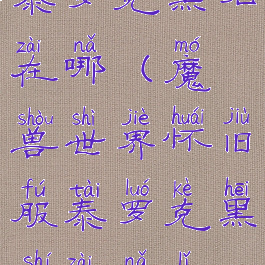 泰罗克黑石
zài nǎ mó
在哪（魔
shòu shì jiè huái jiù
兽世界怀旧
fú tài luó kè hēi
服泰罗克黑
shí zài nǎ lǐ